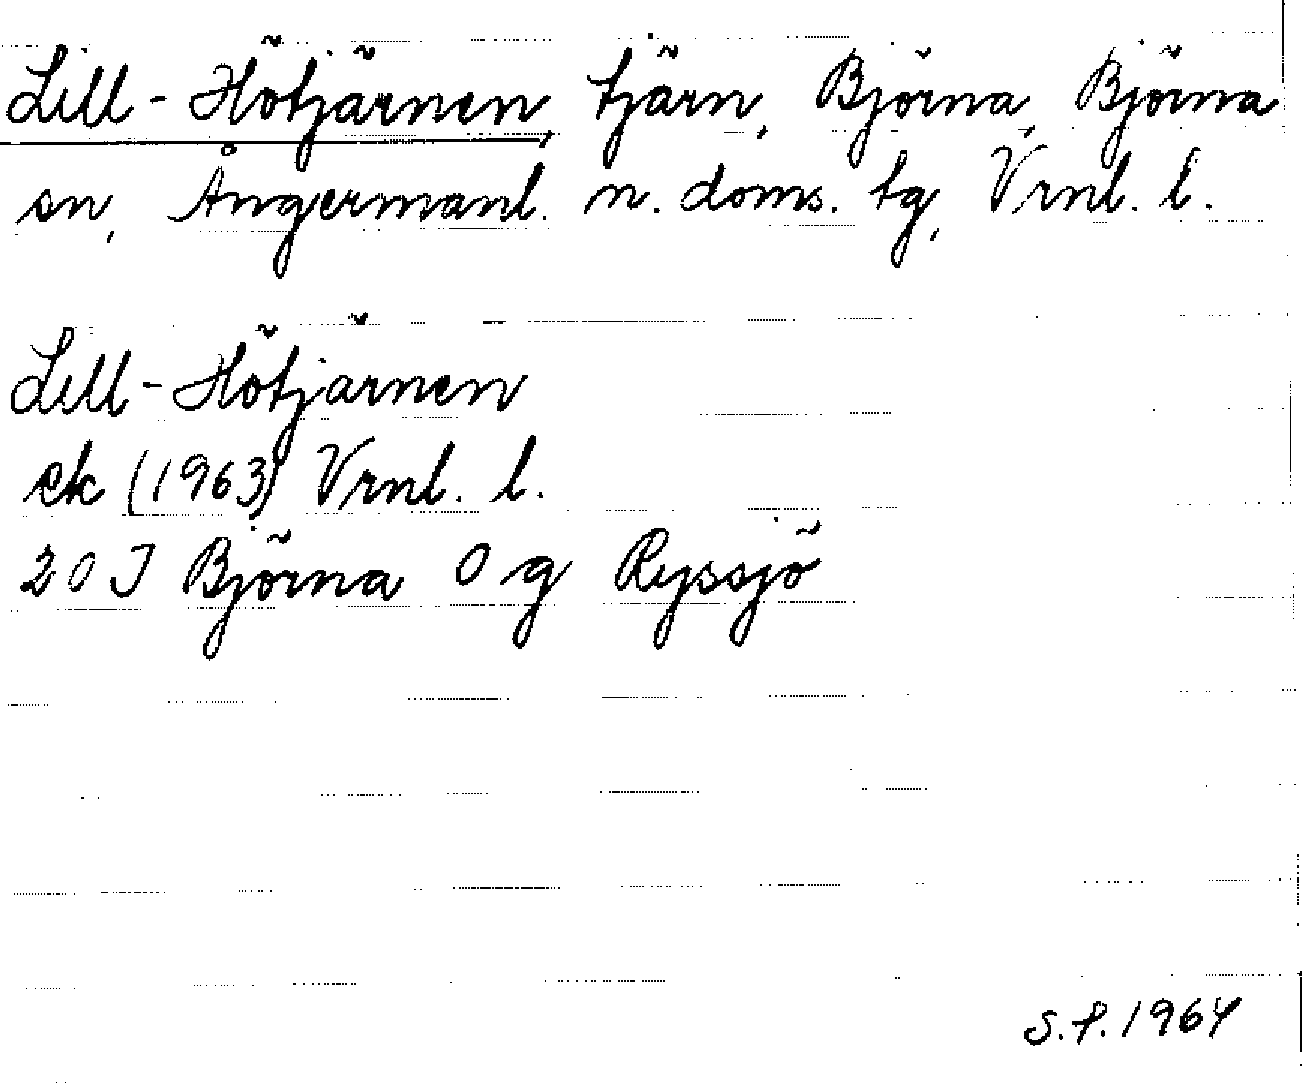 Lill-Hötjärnen, tjärn, Björna, Björna
sn, Ångermanl. n. doms. tg, Vrnl. l.
Lill-Hötjärnen
ek (1963) Vrnl. l.
20 J Björna 0 g Ryssjö
S.F. 1964